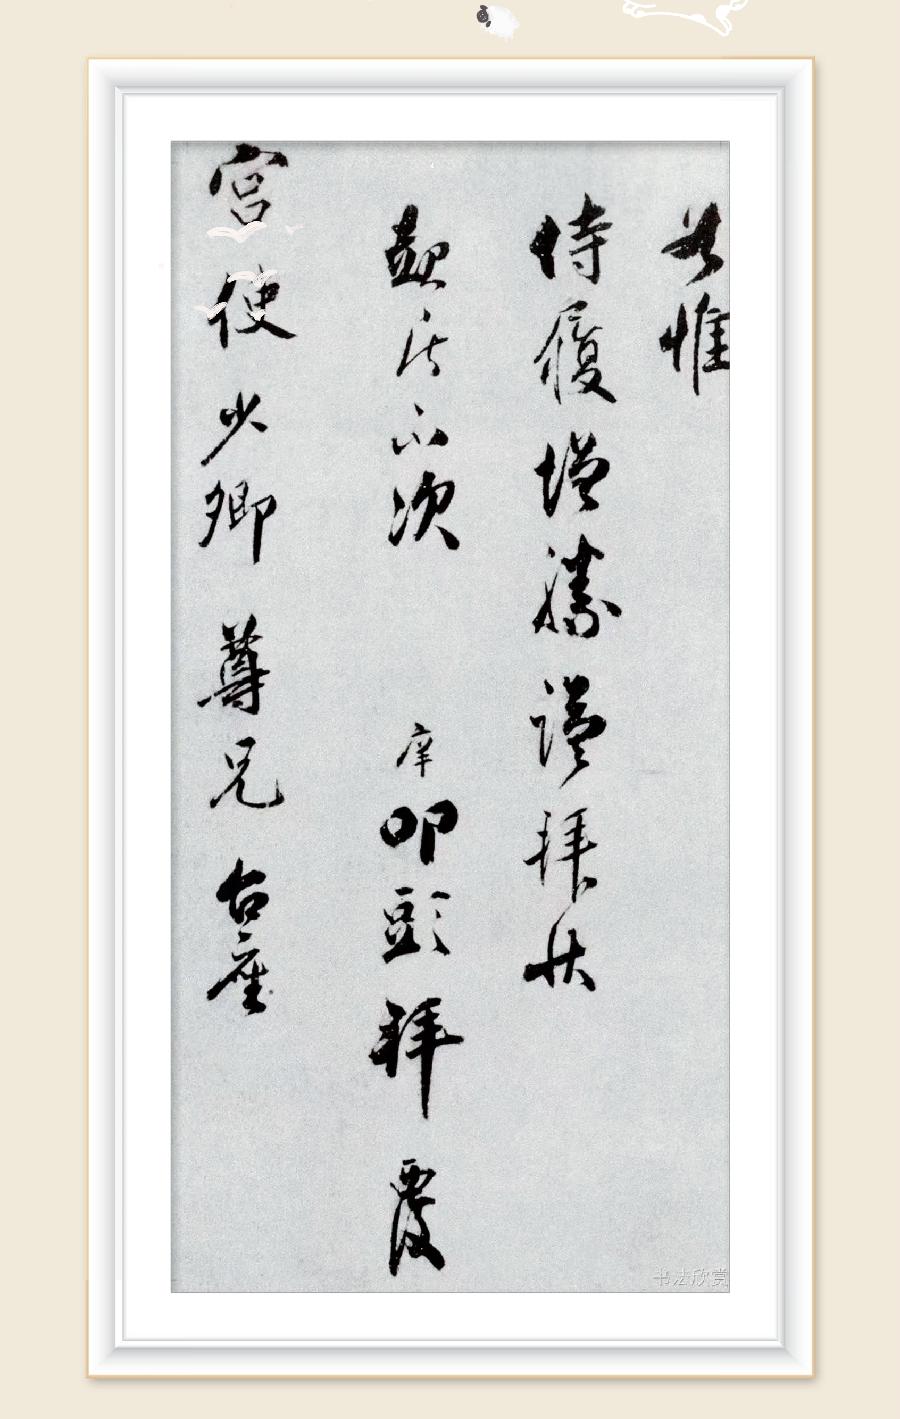 兹惟
侍履增勝謹拜狀
不次 庠叩頭拜覆
宮使少卿尊兄台座
书法欣赏